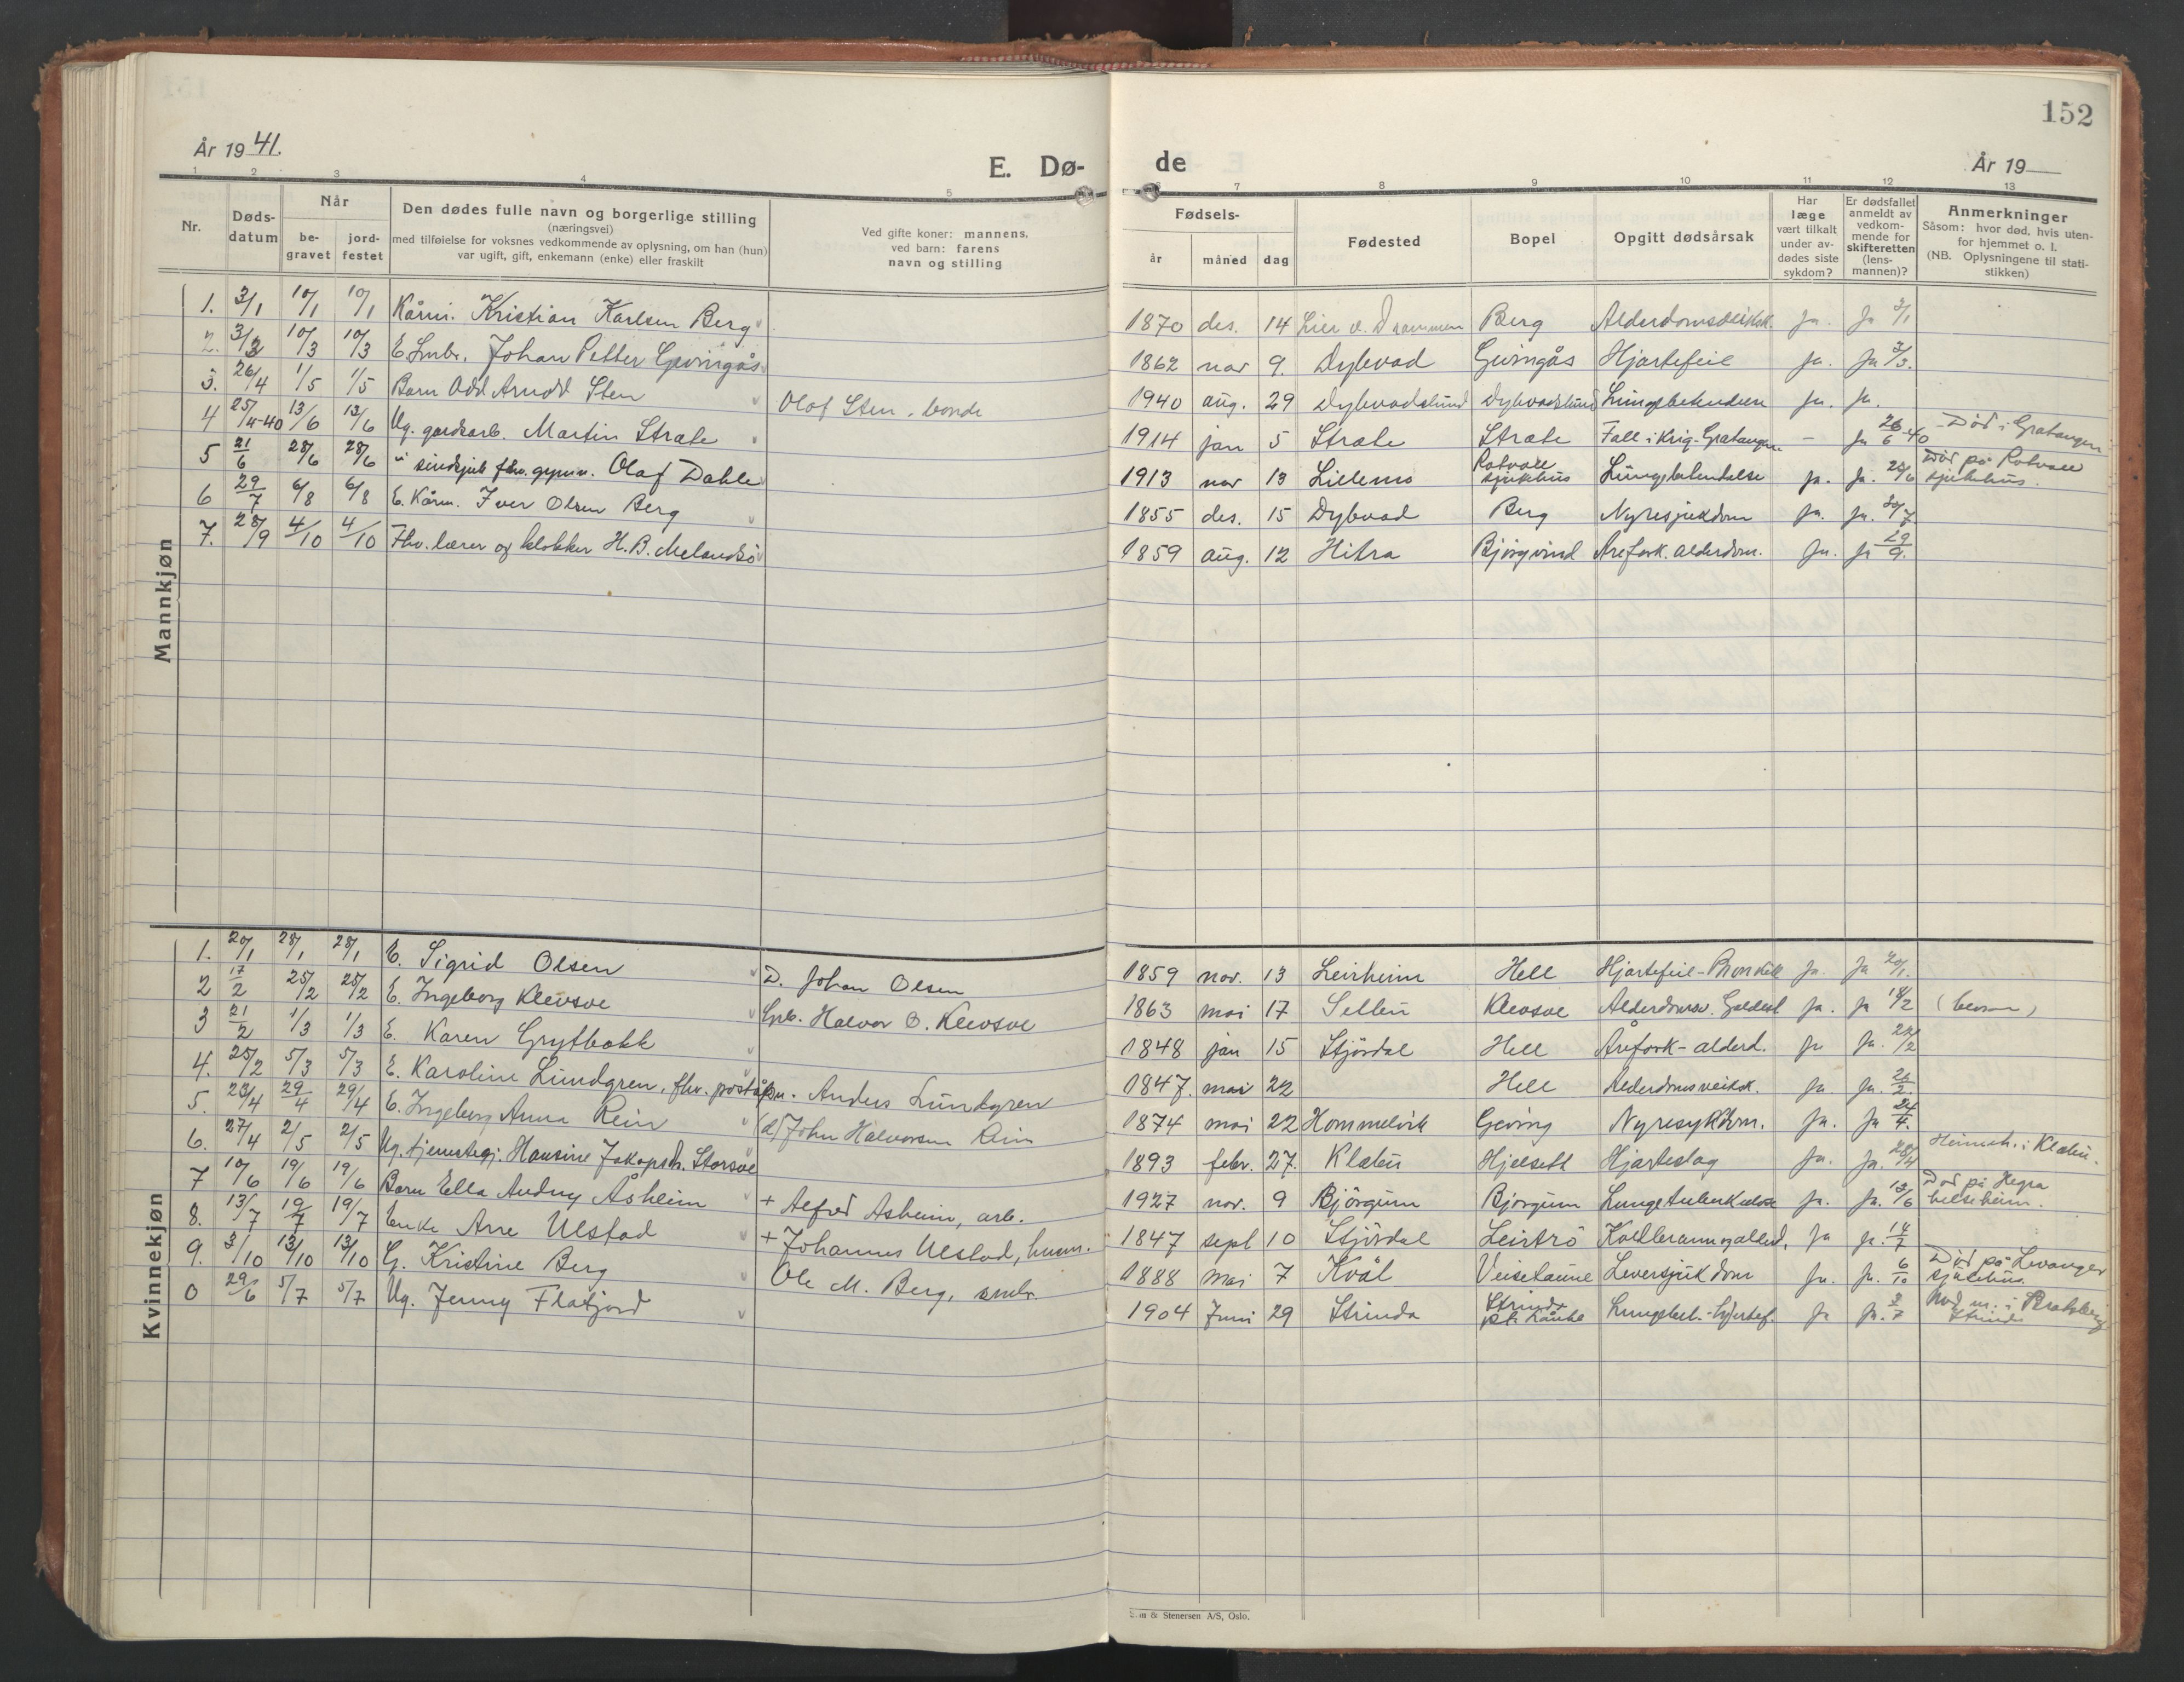 152
År 1941.
E. Dø-
de
År 19
1 2 3 4 5 7 8 9 10 11 12 13
Nr.
Døds-
datum
Når
be-
gravet
jord-
festet
Den dødes fulle navn og borgerlige stilling
(næringsvei)
med tilføielse for voksnes vedkommende av oplysning, om han (hun)
var ugift, gift, enkemann (enke) eller fraskilt
Ved gifte koner: mannens,
ved barn: farens
navn og stilling
Fødsels-
år måned dag
Fødested
Bopel
Opgitt dødsårsak
Har
læge
vært tilkalt
under av-
dødes siste
sykdom?
Er dødsfallet
anmeldt av
vedkom-
mende for
skifteretten
(lens-
mannen)?
Anmerkninger
Såsom: hvor død, hvis uten-
for hjemmet o. l.
(NB. Oplysningene til stati-
stikken)
Mannkjøn
1. 3/1 10/1 10/1 Kårm. Kristian Karlsen Berg 1870 des. 14 Lier v. Drammen Berg Alderdomsveiksk. ja. ja 3/1
2. 3/3 10/3 10/3 E. Smbr. Johan Petter Gevingås 1862 nov 9. Dybvad Gevingås Hjartefeil ja. ja 3/3.
3. 26/4 1/5 1/5 Barn Odd Arnold Sten Olof Sten, bonde 1940 aug. 29 Dybvadslund Dybvadslund Lungebetendelse ja. ja.
4 25/4-40 13/6 13/6 Ug. gardsarb. Martin Stråte 1914 jan 5 Stråte Stråte Fall i krig-Gratangen - ja 26/6 40 Død i Gratangen
5 21/6 28/6 28/6 " sindsjuk fhv. gymn. Olaf Dahle 1913 nov 13 Lillemo Rotvoll sjukehus Lungebetendelse ja. ja. 25/6 Død på Rotvoll sjukehus.
6 29/7 6/8 6/8 E. Kårm. Iver Olsen Berg 1855 des. 15 Dybvad Berg Nyresjukdom ja. ja. 30/7
7. 28/9 4/10 4/10 Fhv. lærer og klokker H. B. Melandsø 1859 aug. 12 Hitra Bjørgvind Årefork. alderdom. ja. ja 29/9.
Kvinnekjøn
1. 20/1 28/1 28/1 E. Sigrid Olsen D. Johan Olsen 1859 nov. 13 Leirheim Hell Hjartefeil-Bronkitt ja. ja 20/1.
2 17/2 25/2 25/2 E. Ingeborg Klevsve Grb. Halvor O. Klevsve 1863 mai 17 Selbu Klevsve Alderdomsv. ja. ja 18/2
3 21/2 1/3 1/3 E. Karen Grytbakk 1848 jan 15 Stjørdal Hell Årefork-alderd. ja ja. 22/2
4. 25/2 5/3 5/3 E. Karoline Lundgren, fhv. poståpn. Anders Lundgren 1847. mai 22 Hell Alderdomsveiksk. ja ja. 26/2.
5. 23/4 29/4 29/4 E. Ingeborg Anna Rein d/ John Halvorsen Rein 1874 mai 22 Hommelvik Geving Nyresykdom. ja. ja 24/4.
6. 27/4 2/5 2/5 Ug. tjenestegj. Hansine Jakopsdt. Storsve 1893 febr. 27. Klæbu Hjelseth Hjarteslag ja. ja. 28/4 Heimeh. i Klæbu.
7 10/6 19/6 19/6 Barn Ella Audny Åsheim + Alfred Åsheim, arb. 1927 nov. 9 Bjørgum Bjørgum Lungetuberkulose ja. ja. 13/6 Død på Hegra helseheim.
8. 13/7 19/7 19/7 Enke Arre Ulstad + Johannes Ulstad, husm. 1847 sept 10 Stjørdal Leistrø Koldbrann og alderd. ja ja. 14/7
9. 3/10 13/10 13/10 G. Kristine Berg Ole M. Berg, smbr. 1888 mai 7 Kvål Veisetaune Leversjukdom ja. ja. 6/10 Død på Levanger sjukehus.
0 29/6 5/7 5/7 Ug. Jenny Flatjord 1904 Juni 29 Strinda Strinda Lungebet.-hjertef. ja ja. 2/7 i Bratsberg Strinda
& Stenersen A/S, Oslo.